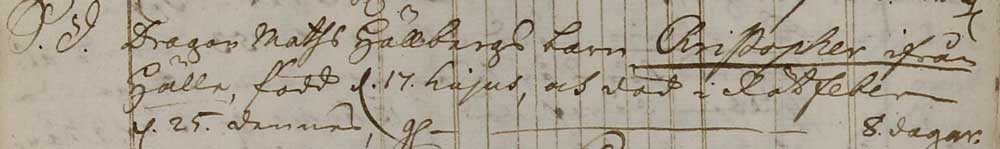 S. d. Dragon Maths Hällbergs barn Christopher ifrån
Hälle, född d. 17. hujus, och död i Rödfeber
d. 25. dennes, 8. dagar.